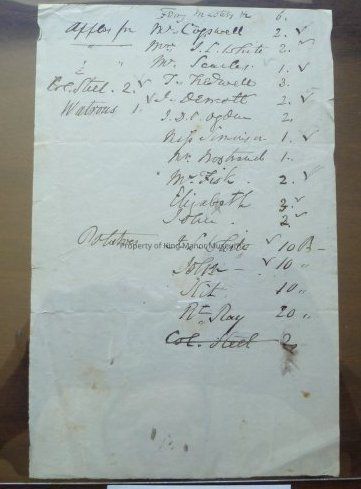 6.
Apples for Mr Cogswell 2. ✓
" Mrs J. L. White 2. ✓
" Mr Searles 1. ✓
Col. Steel. 2. ✓ T. Tredwell 3.
Watrous 1. ✓ J. Dermott 2. ✓
J. D. Ogden 2,
Miss 1. ✓
Mr 1.
Mr Fisk. 2. ✓
Elizabeth 2. ✓
John. 2. ✓
Potatoes ✓ 10 B–
Property of King Manor Museum
John – ✓ 10 "
Kit 10 "
Rt. Ray 20 "
Col. Steel 2